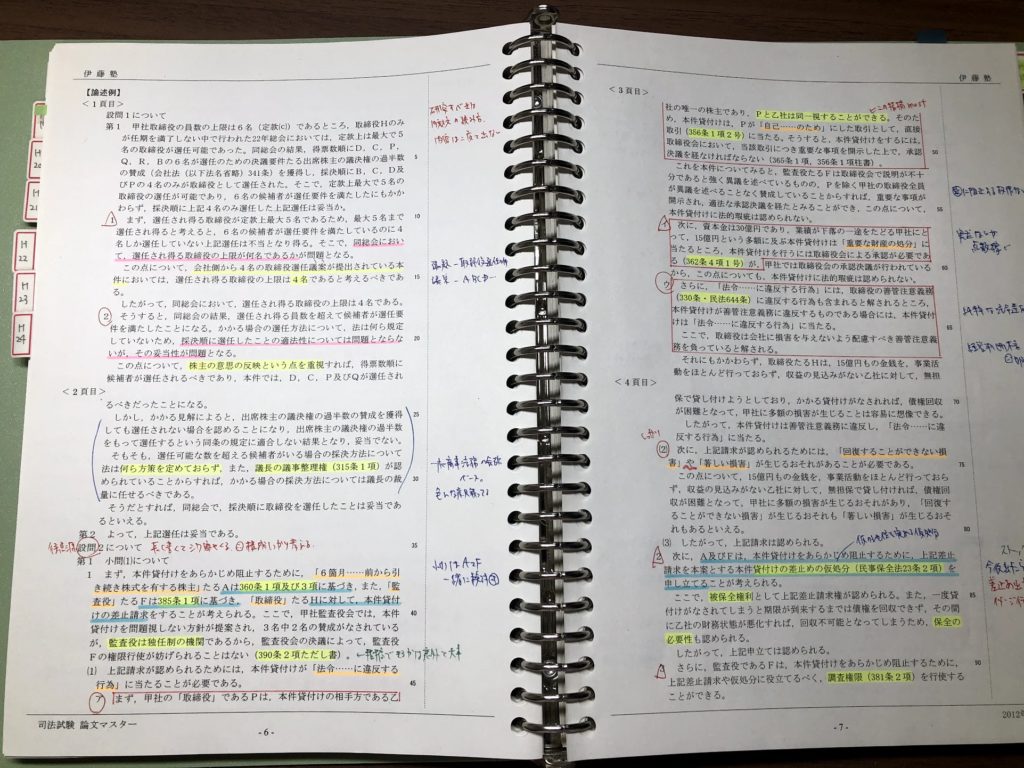 伊藤塾
【論述例】
<1頁目>
設問1について
第1 甲社取締役の員数の上限は6名（定款(c)）であるところ、取締役Hのみ
が任期を満了しない中で行われた22年総会においては、定款上は最大で5
名の取締役が選任可能であった。同総会の結果、得票数順にD、C、P、
Q、R、Bの6名が選任のための決議要件たる出席株主の議決権の過半数
の賛成（会社法（以下法名省略）341条）を獲得し、採決順にB、C、D及
びPの4名のみが取締役として選任された。そこで、定款上最大で5名の
取締役の選任が可能であり、6名の候補者が選任要件を満たしたにもかか
わらず、採決順に上記4名のみ選任した上記選任は妥当か。
1 まず、選任され得る取締役が定款上最大5名であるため、最大5名まで
選任され得ると考えると、6名の候補者が選任要件を満たしているのに4
名しか選任していない上記選任は不当となり得る。そこで、同総会におい
て、選任され得る取締役の上限が何名であるかが問題となる。
この点について、会社側から4名の取締役選任議案が提出されている本
件においては、選任され得る取締役の上限は4名であると考えるべきであ
る。
したがって、同総会において、選任され得る取締役の上限は4名である。
2 そうすると、同総会の結果、選任され得る員数を超えて候補者が選任要
件を満たしたことになる。かかる場合の選任方法について、法は何ら規定
していないため、採決順に選任したことの適法性については問題とならな
いが、その妥当性が問題となる。
この点について、株主の意思の反映という点を重視すれば、得票数順に
候補者が選任されるべきであり、本件では、D、C、P及びQが選任され
<2頁目>
るべきだったことになる。
しかし、かかる見解によると、出席株主の議決権の過半数の賛成を獲得
しても選任されない場合を認めることになり、出席株主の議決権の過半数
をもって選任するという同条の規定に適合しない結果となり、妥当でない。
そもそも、選任可能な数を超える候補者がいる場合の採決方法について
法は何ら方策を定めておらず、また、議長の議事整理権（315条1項）が認
められていることからすれば、かかる場合の採決方法については議長の裁
量に任せるべきである。
そうだとすれば、同総会で、採決順に取締役を選任したことは妥当であ
るといえる。
第2 よって、上記選任は妥当である。
設問2について
第1 小問(1)について
1 まず、本件貸付けをあらかじめ阻止するために、「6箇月……前から引
き続き株式を有する株主」たるAは360条1項及び3項に基づき、また、「監
査役」たるFは385条1項に基づき、「取締役」たるHに対して、本件貸付
けの差止請求をすることが考えられる。ここで、甲社監査役会では、本件
貸付けを問題視しない方針が提案され、3名中2名の賛成がなされている
が、監査役は独任制の機関であるから、監査役会の決議によって、監査役
Fの権限行使が妨げられることはない（390条2項ただし書）。
(1) 上記請求が認められるためには、本件貸付けが「法令……に違反する
行為」に当たることが必要である。
ア まず、甲社の「取締役」であるPは、本件貸付けの相手方である乙
5
10
15
20
25
30
35
40
45
司法試験 論文マスター
-6-
伊藤塾
<3頁目>
社の唯一の株主であり、Pと乙社は同一視することができる。そのた
め、本件貸付けは、Pが「自己……のため」にした取引として、直接
取引（356条1項2号）に当たる。そうすると、本件貸付けをするには、
取締役会において、当該取引につき重要な事項を開示した上で、承認
決議を経なければならない（365条1項、356条1項柱書）。
これを本件についてみると、監査役たるFは取締役会で説明が不十
分であると強く異議を述べているものの、Pを除く甲社の取締役全員
が異議を述べることなく賛成していることからすれば、重要な事項が
開示され、適法な承認決議を経たとみることができ、この点について、
本件貸付けに法的瑕疵は認められない。
イ 次に、資本金は30億円であり、業績が下落の一途をたどる甲社にと
って、15億円という多額に及ぶ本件貸付けは「重要な財産の処分」に
当たるところ、本件貸付けを行うには取締役会による承認が必要であ
る（362条4項1号）が、甲社では取締役会の承認決議が行われている
から、この点についても、本件貸付けに法的瑕疵は認められない。
ウ さらに、「法令……に違反する行為」には、取締役の善管注意義務
（330条・民法644条）に違反する行為も含まれると解されるところ、
本件貸付けが善管注意義務に違反するものである場合には、本件貸付
けは「法令……に違反する行為」に当たる。
ここで、取締役は会社に損害を与えないよう配慮すべき善管注意義
務を負っていると解される。
それにもかかわらず、取締役たるHは、15億円もの金銭を、事業活
動をほとんど行っておらず、収益の見込みがない乙社に対して、無担
<4頁目>
保で貸し付けようとしており、かかる貸付けがなされれば、債権回収
が困難となって、甲社に多額の損害が生じることは容易に想像できる。
したがって、本件貸付けは善管注意義務に違反し、「法令……に違
反する行為」に当たる。
(2) 次に、上記請求が認められるためには、「回復することができない損
害」や「著しい損害」が生じるおそれがあることが必要である。
この点について、15億円もの金銭を、事業活動をほとんど行っておら
ず、収益の見込みがない乙社に対して、無担保で貸し付ければ、債権回
収が困難となり、甲社に多額の損害が生じるおそれがあり、「回復す
ることができない損害」が生じるおそれも「著しい損害」が生じるおそ
れもあるといえる。
(3) したがって、上記請求は認められる。
2 次に、A及びFは、本件貸付けをあらかじめ阻止するために、上記差止
請求を本案とする本件貸付けの差止めの仮処分（民事保全法23条2項）を
申し立てることが考えられる。
ここで、被保全権利として上記差止請求権が認められる。また、一度貸
付けがなされてしまうと期限が到来するまでは債権を回収できず、その間
に乙社の財務状態が悪化すれば、回収不可能となってしまうため、保全の
必要性も認められる。
したがって、上記申立ては認められる。
3 さらに、監査役であるFは、本件貸付けをあらかじめ阻止するために、
上記差止請求や仮処分に役立てるべく、調査権限（381条2項）を行使する
ことができる。
50
55
60
65
70
75
80
85
90
-7-
2012年
H
22
H
23
H
24